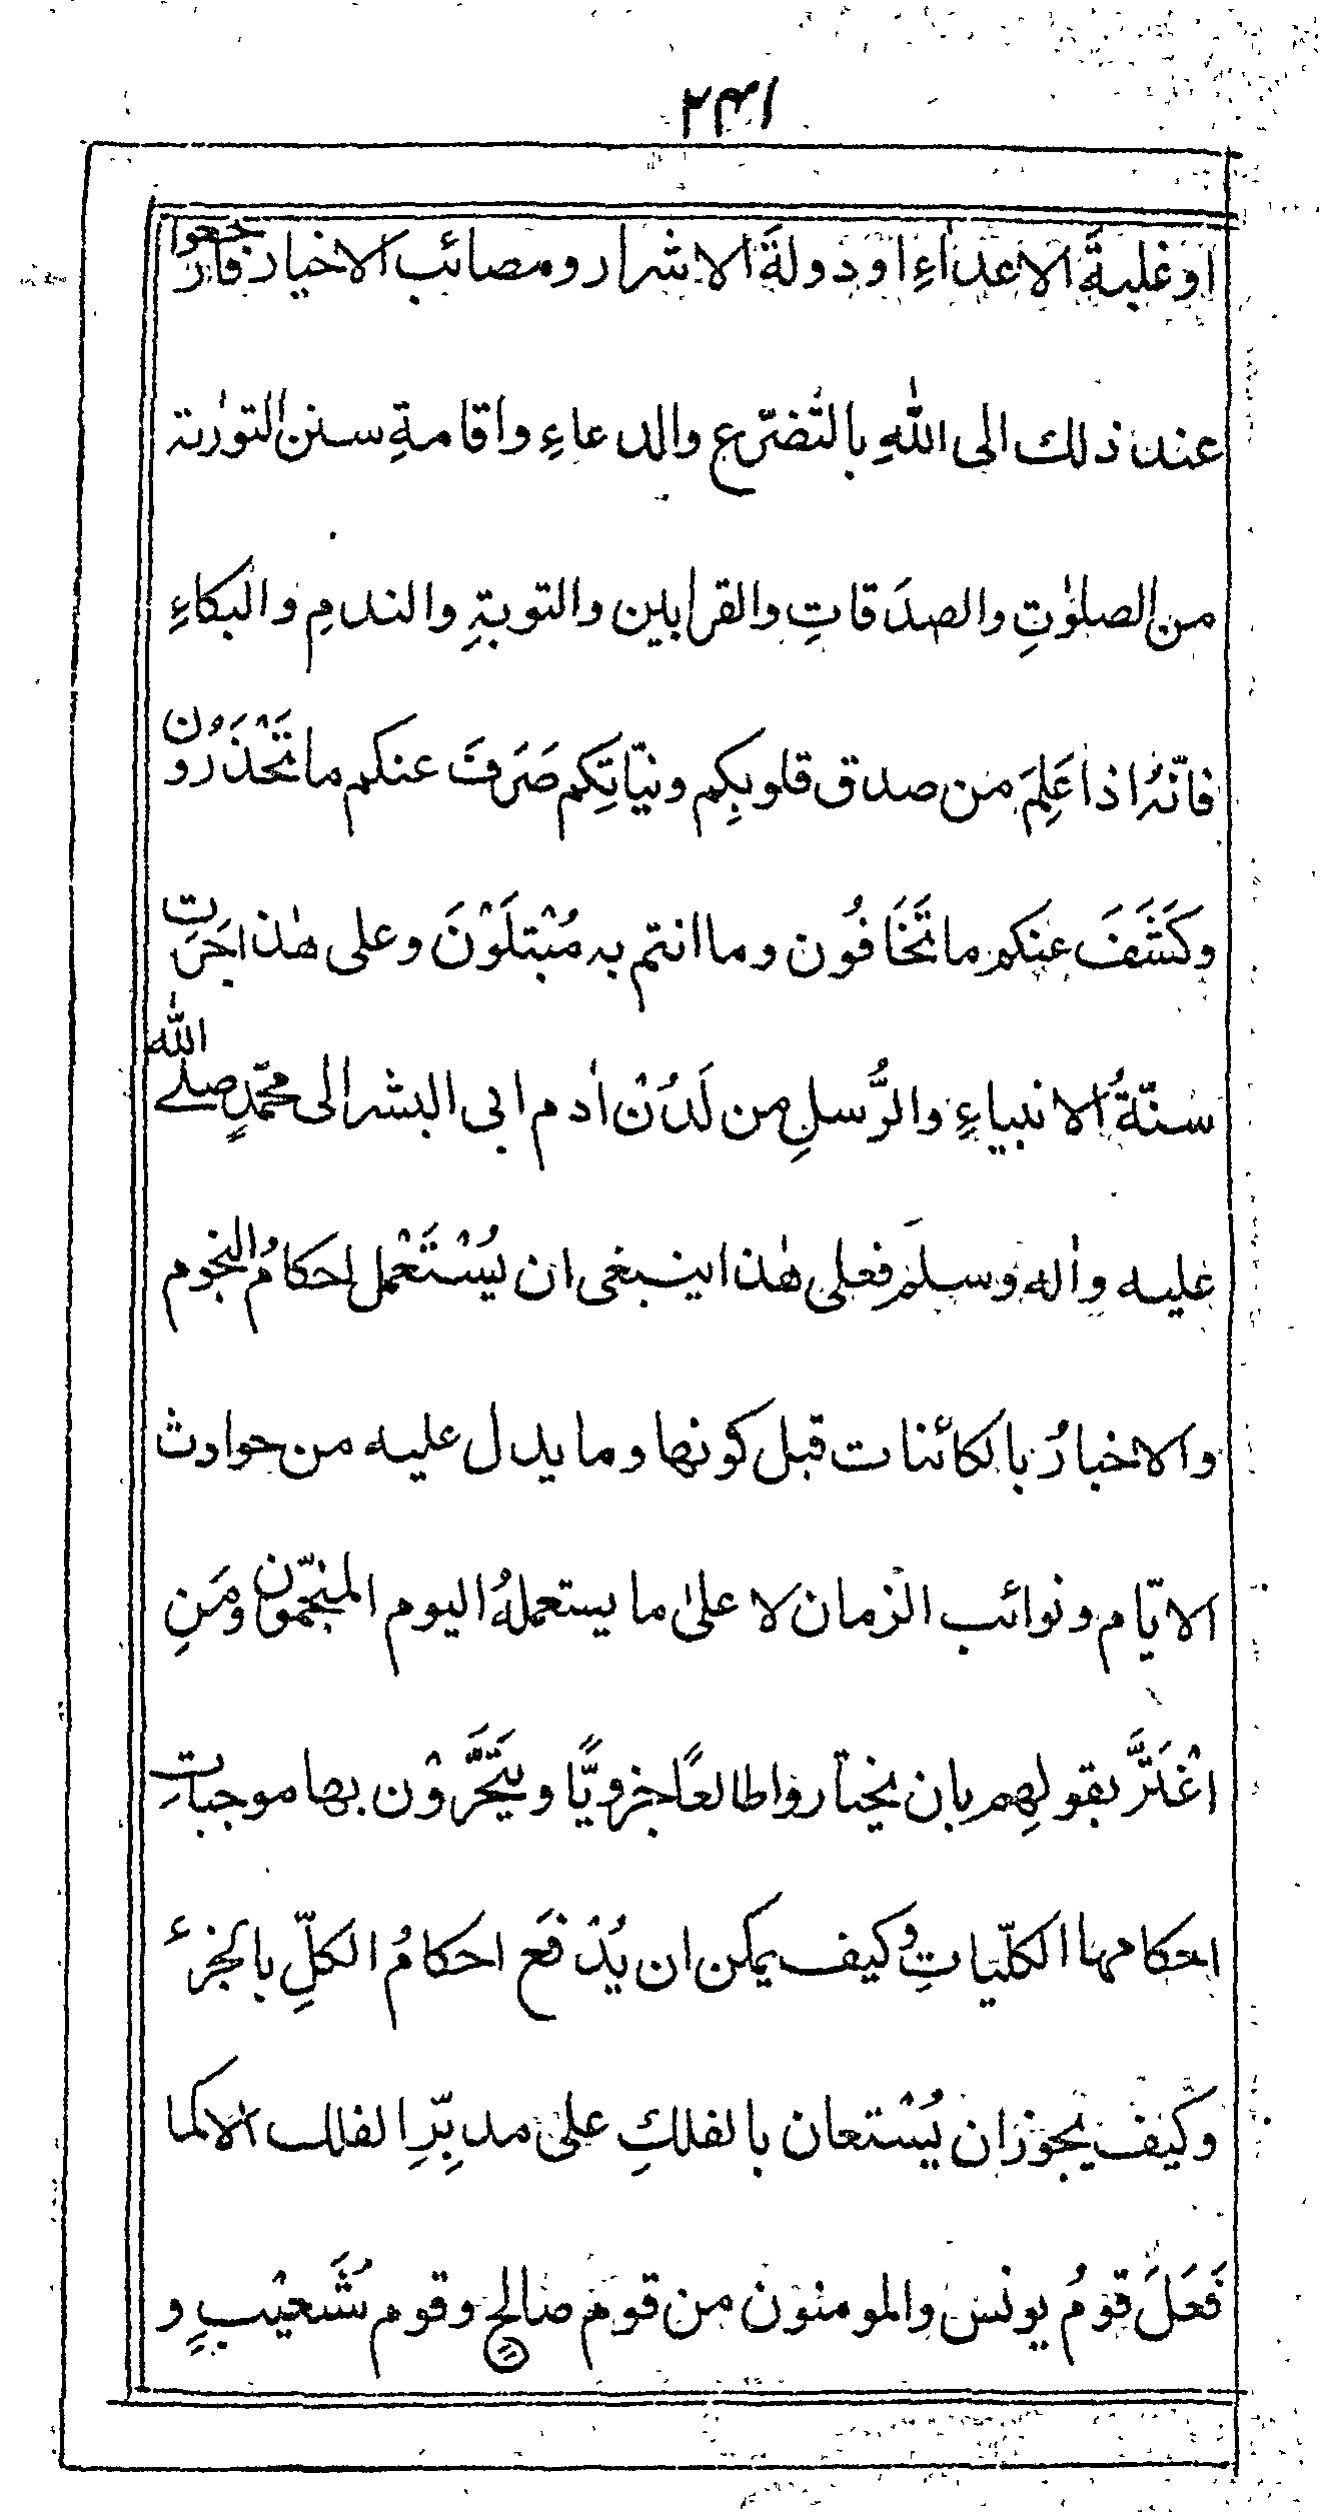 ٢٤١
او غلبةَ الاعداءِ او دولةَ الاشرار ومصائب الاخيار فارجعوا
عند ذلك الى اللّٰهِ بالتّضرّع والدعاءِ واقامةِ سنن التورٰىة
من الصلوٰتِ والصدَقاتِ والقرابين والتوبةِ والندمِ والبكاءِ
فانّهٗ اذا عَلِمَ من صدق قلوبِكم ونيّاتِكم صَرَفَ عنكم ما تَحْذَرُون
وكَشَفَ عنكم ما تَخَافُون وما انتم به مُبْتلَوْنَ وعلى هٰذا جَرَت
سنّةُ الانبياءِ والرُّسلِ من لَدُنْ اٰدم ابى البشر الى محمّدٍ صلے اللّٰه
عليه واٰله وسلم فعلى هٰذا ينبغى ان يُسْتَعْمل احكامُ النجوم
والاخبارُ بالكائنات قبل كونها وما يدل عليه من حوادث
الايّام ونوائب الزمان لا علىٰ ما يستعملهُ اليوم المنجّمون ومَنِ
اغْتَرَّ بقولهِم بان يختاروا طالعًا جزويًّا ويَتَحَّرَوْن بها موجباتِ
احكامها الكلّياتِ وكيف يمكن ان يُدْفَع احكامُ الكلِّ بالجزءِ
وكيف يجوز ان يُسْتعان بالفلكِ علىٰ مدبِّرِ الفلك الا كما
فَعَلَ قومُ يونس والمومنون من قوم صالحٍ وقوم شُعَيْبٍ و